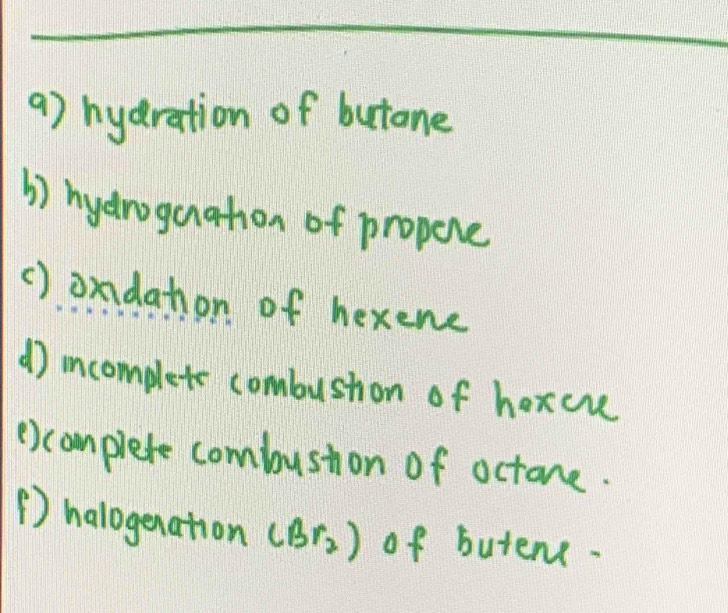 a) hydration of butane
b) hydrogenation of propene
c) oxidation of hexene
d) incomplete combustion of hexene
e) complete combustion of octane.
f) halogenation (Br₂) of butene.